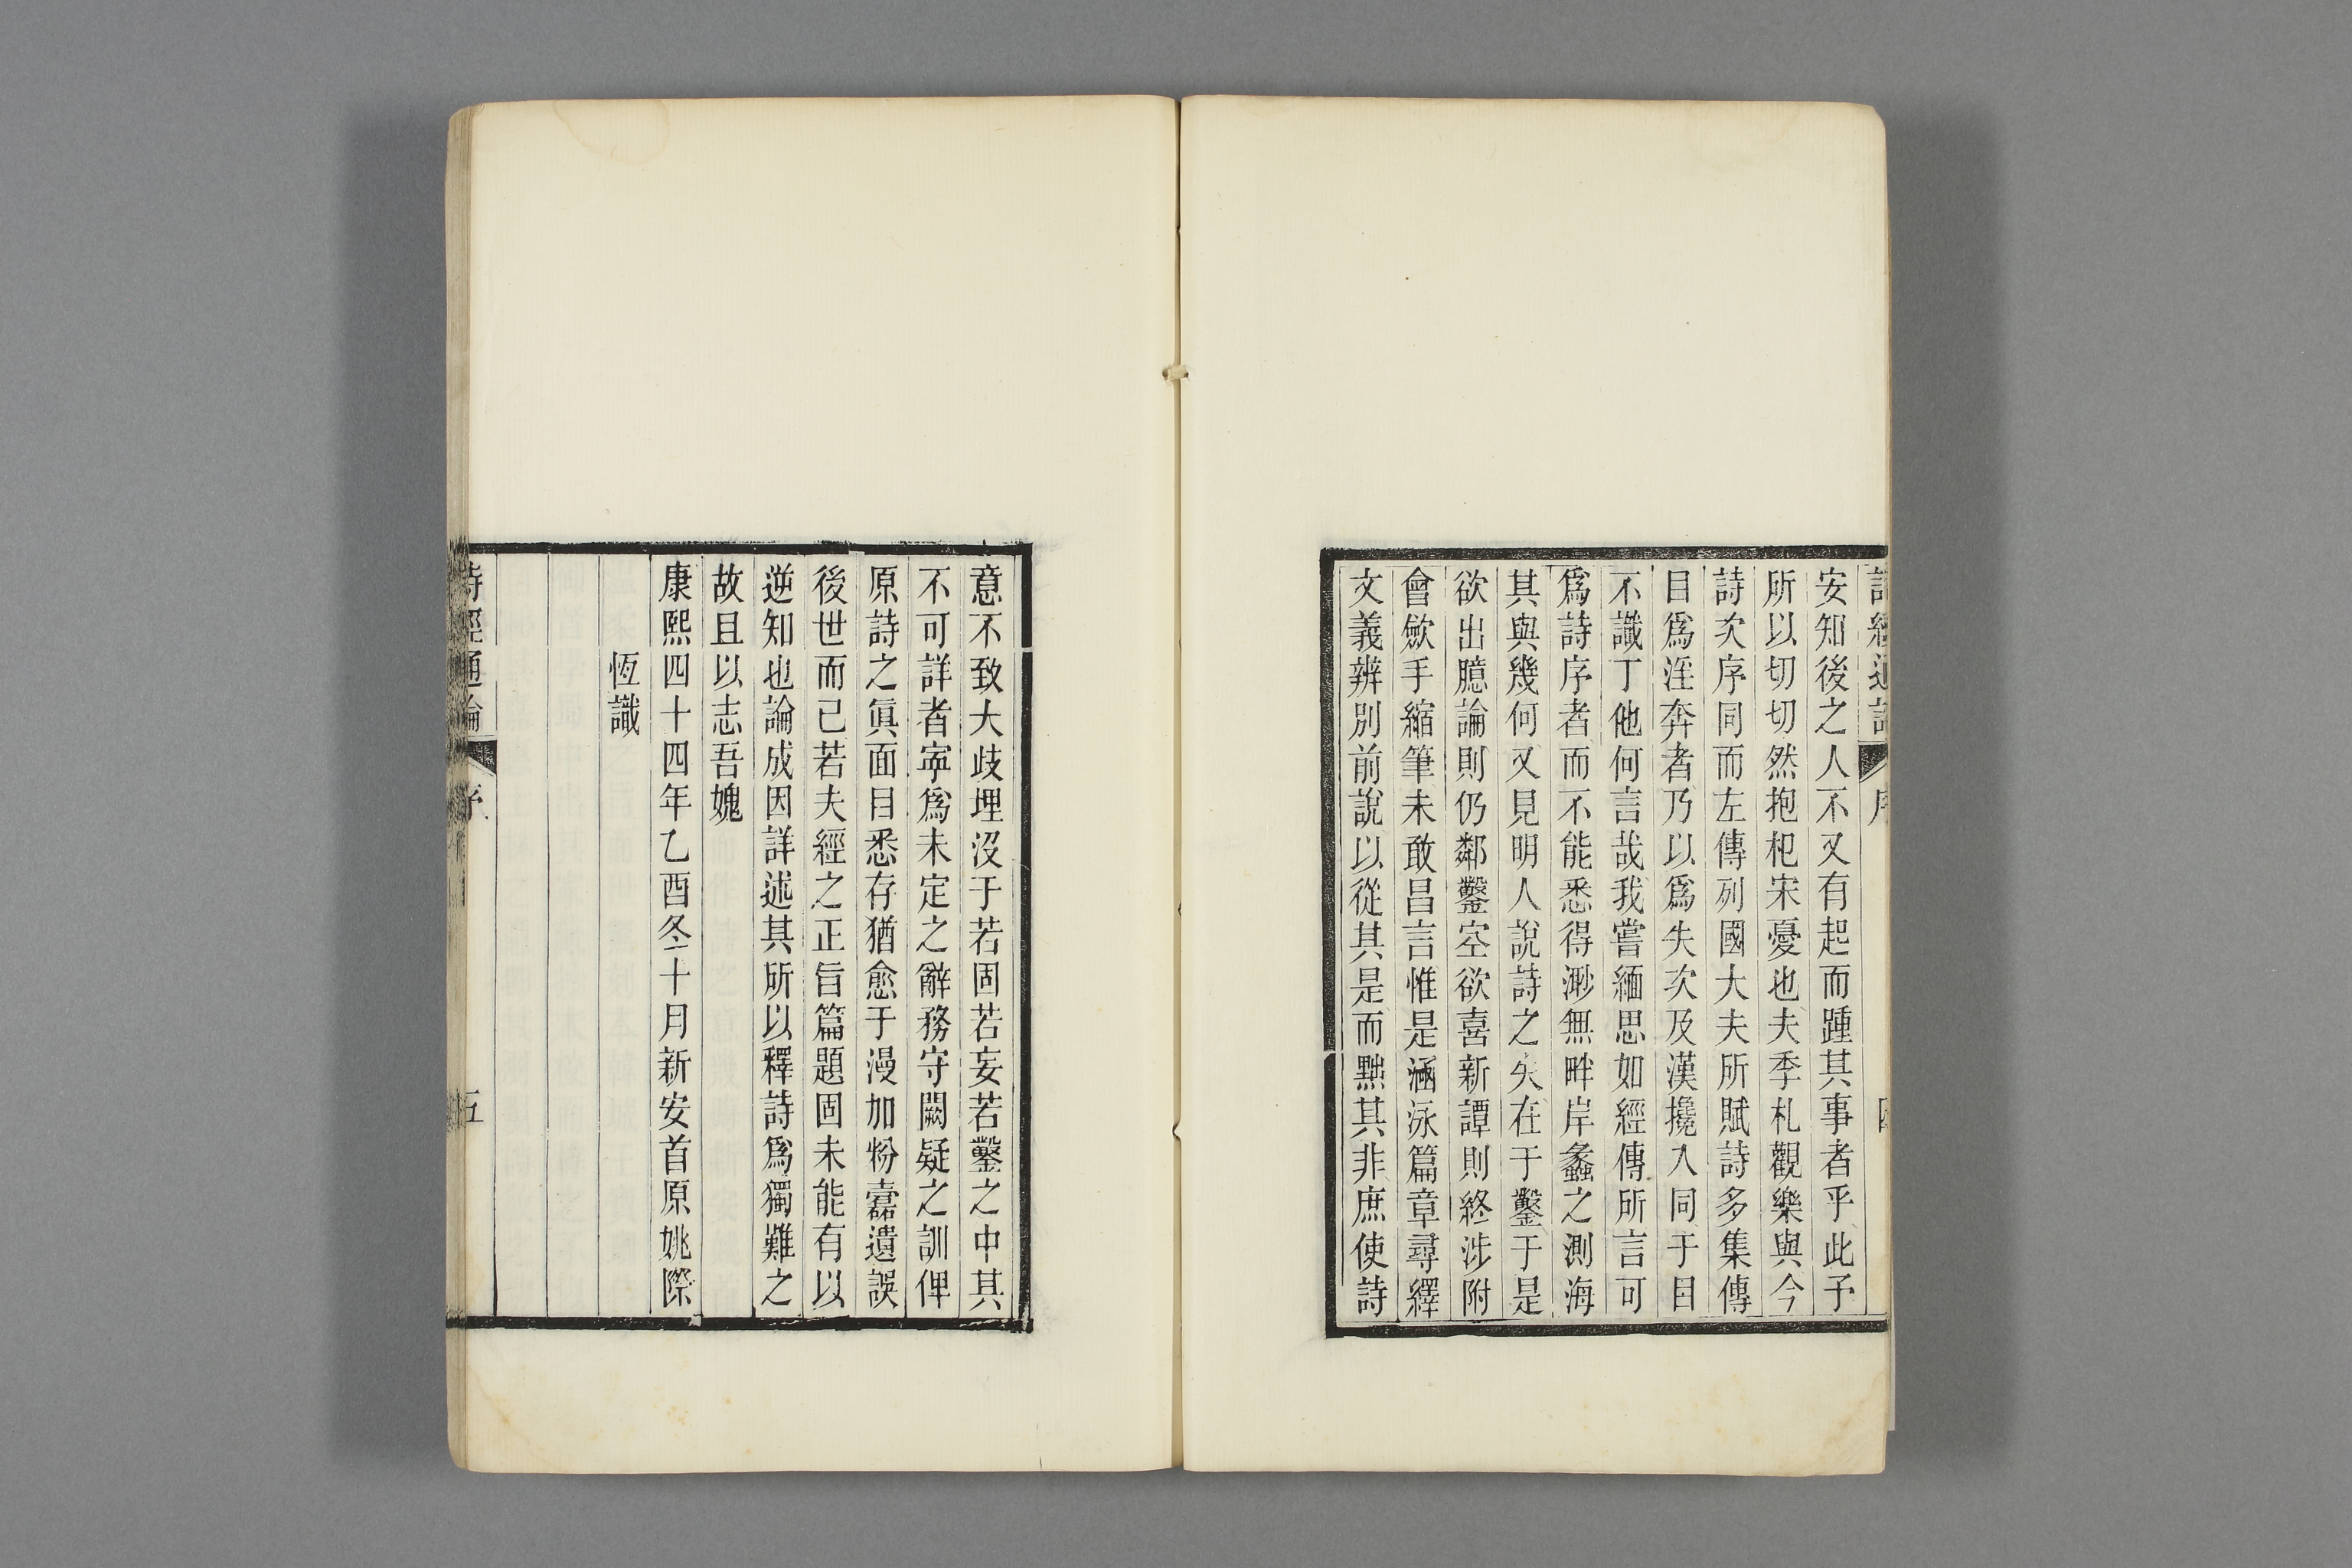 詩經通論 序
安知後之人不又有起而踵其事者乎此予
所以切切然抱杞宋憂也夫季札觀樂與今
詩次序同而左傳列國大夫所賦詩多集傳
目爲淫奔者乃以爲失次及漢攙入同于目
不識丁他何言哉我嘗緬思如經傳所言可
爲詩序者而不能悉得渺無畔岸蠡之測海
其與幾何又見明人說詩之失在于鑿于是
欲出臆論則仍鄰鑿空欲喜新譚則終涉附
會斂手縮筆未敢昌言惟是涵泳篇章尋繹
文義辨別前說以從其是而黜其非庶使詩
意不致大歧埋沒于若固若妄若鑿之中其
不可詳者寧爲未定之辭務守闕疑之訓俾
原詩之眞面目悉存猶愈于漫加粉蠹遺誤
後世而已若夫經之正旨篇題固未能有以
逆知也論成因詳述其所以釋詩爲獨難之
故且以志吾媿
康熙四十四年乙酉冬十月新安首原姚際
恆識
詩經通論 序 五